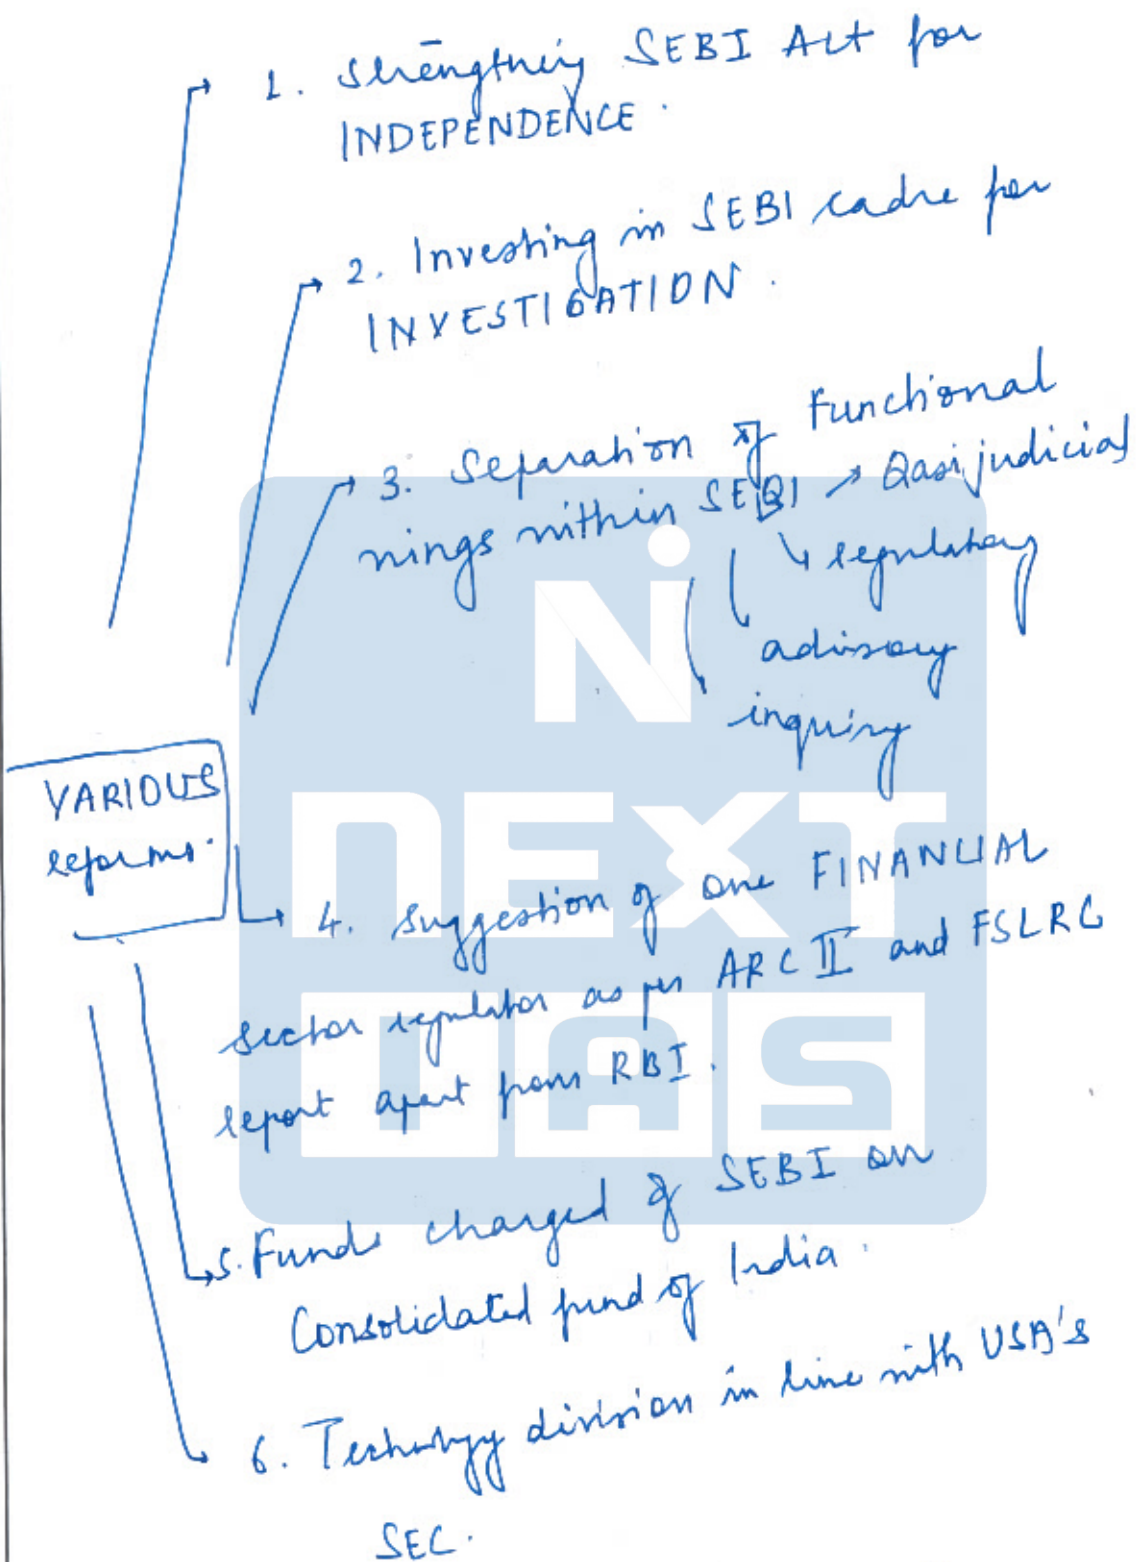 1. Strengthning SEBI Act for
INDEPENDENCE.
2. Investing in SEBI cadre for
INVESTIGATION.
3. Separation of Functional
wings within SEBI → Qasijudicial
↳ regulatory
advisory
inquiry
VARIOUS
reforms.
4. Suggestion of one FINANCIAL
sector regulator as per ARC II and FSLRC
report apart from RBI.
5. Funds charged of SEBI on
Consolidated fund of India.
6. Technology division in line with USA's
SEC.
Ni
NEXT
IAS